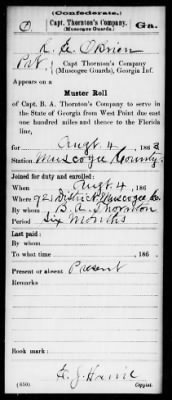 (Confederate.)
Capt. Thornton's Company. Ga.
(Muscogee Guards.)
O'Brien
Pvt., Capt. Thornton's Company
(Muscogee Guards), Georgia Inf.
Appears on a
Muster Roll
of Capt. B. A. Thornton's Company to serve in
the State of Georgia from West Point due east
one hundred miles and thence to the Florida
line,
for Augt. 4, 186 3
Station Muscogee County
Joined for duty and enrolled:
When Augt. 4, 186
Where 921 District Muscogee Co
By whom B. A. Thornton
Period Six Months
Last paid:
By whom
To what time , 186
Present or absent Present
Remarks
Book mark:
(650) Copyist.